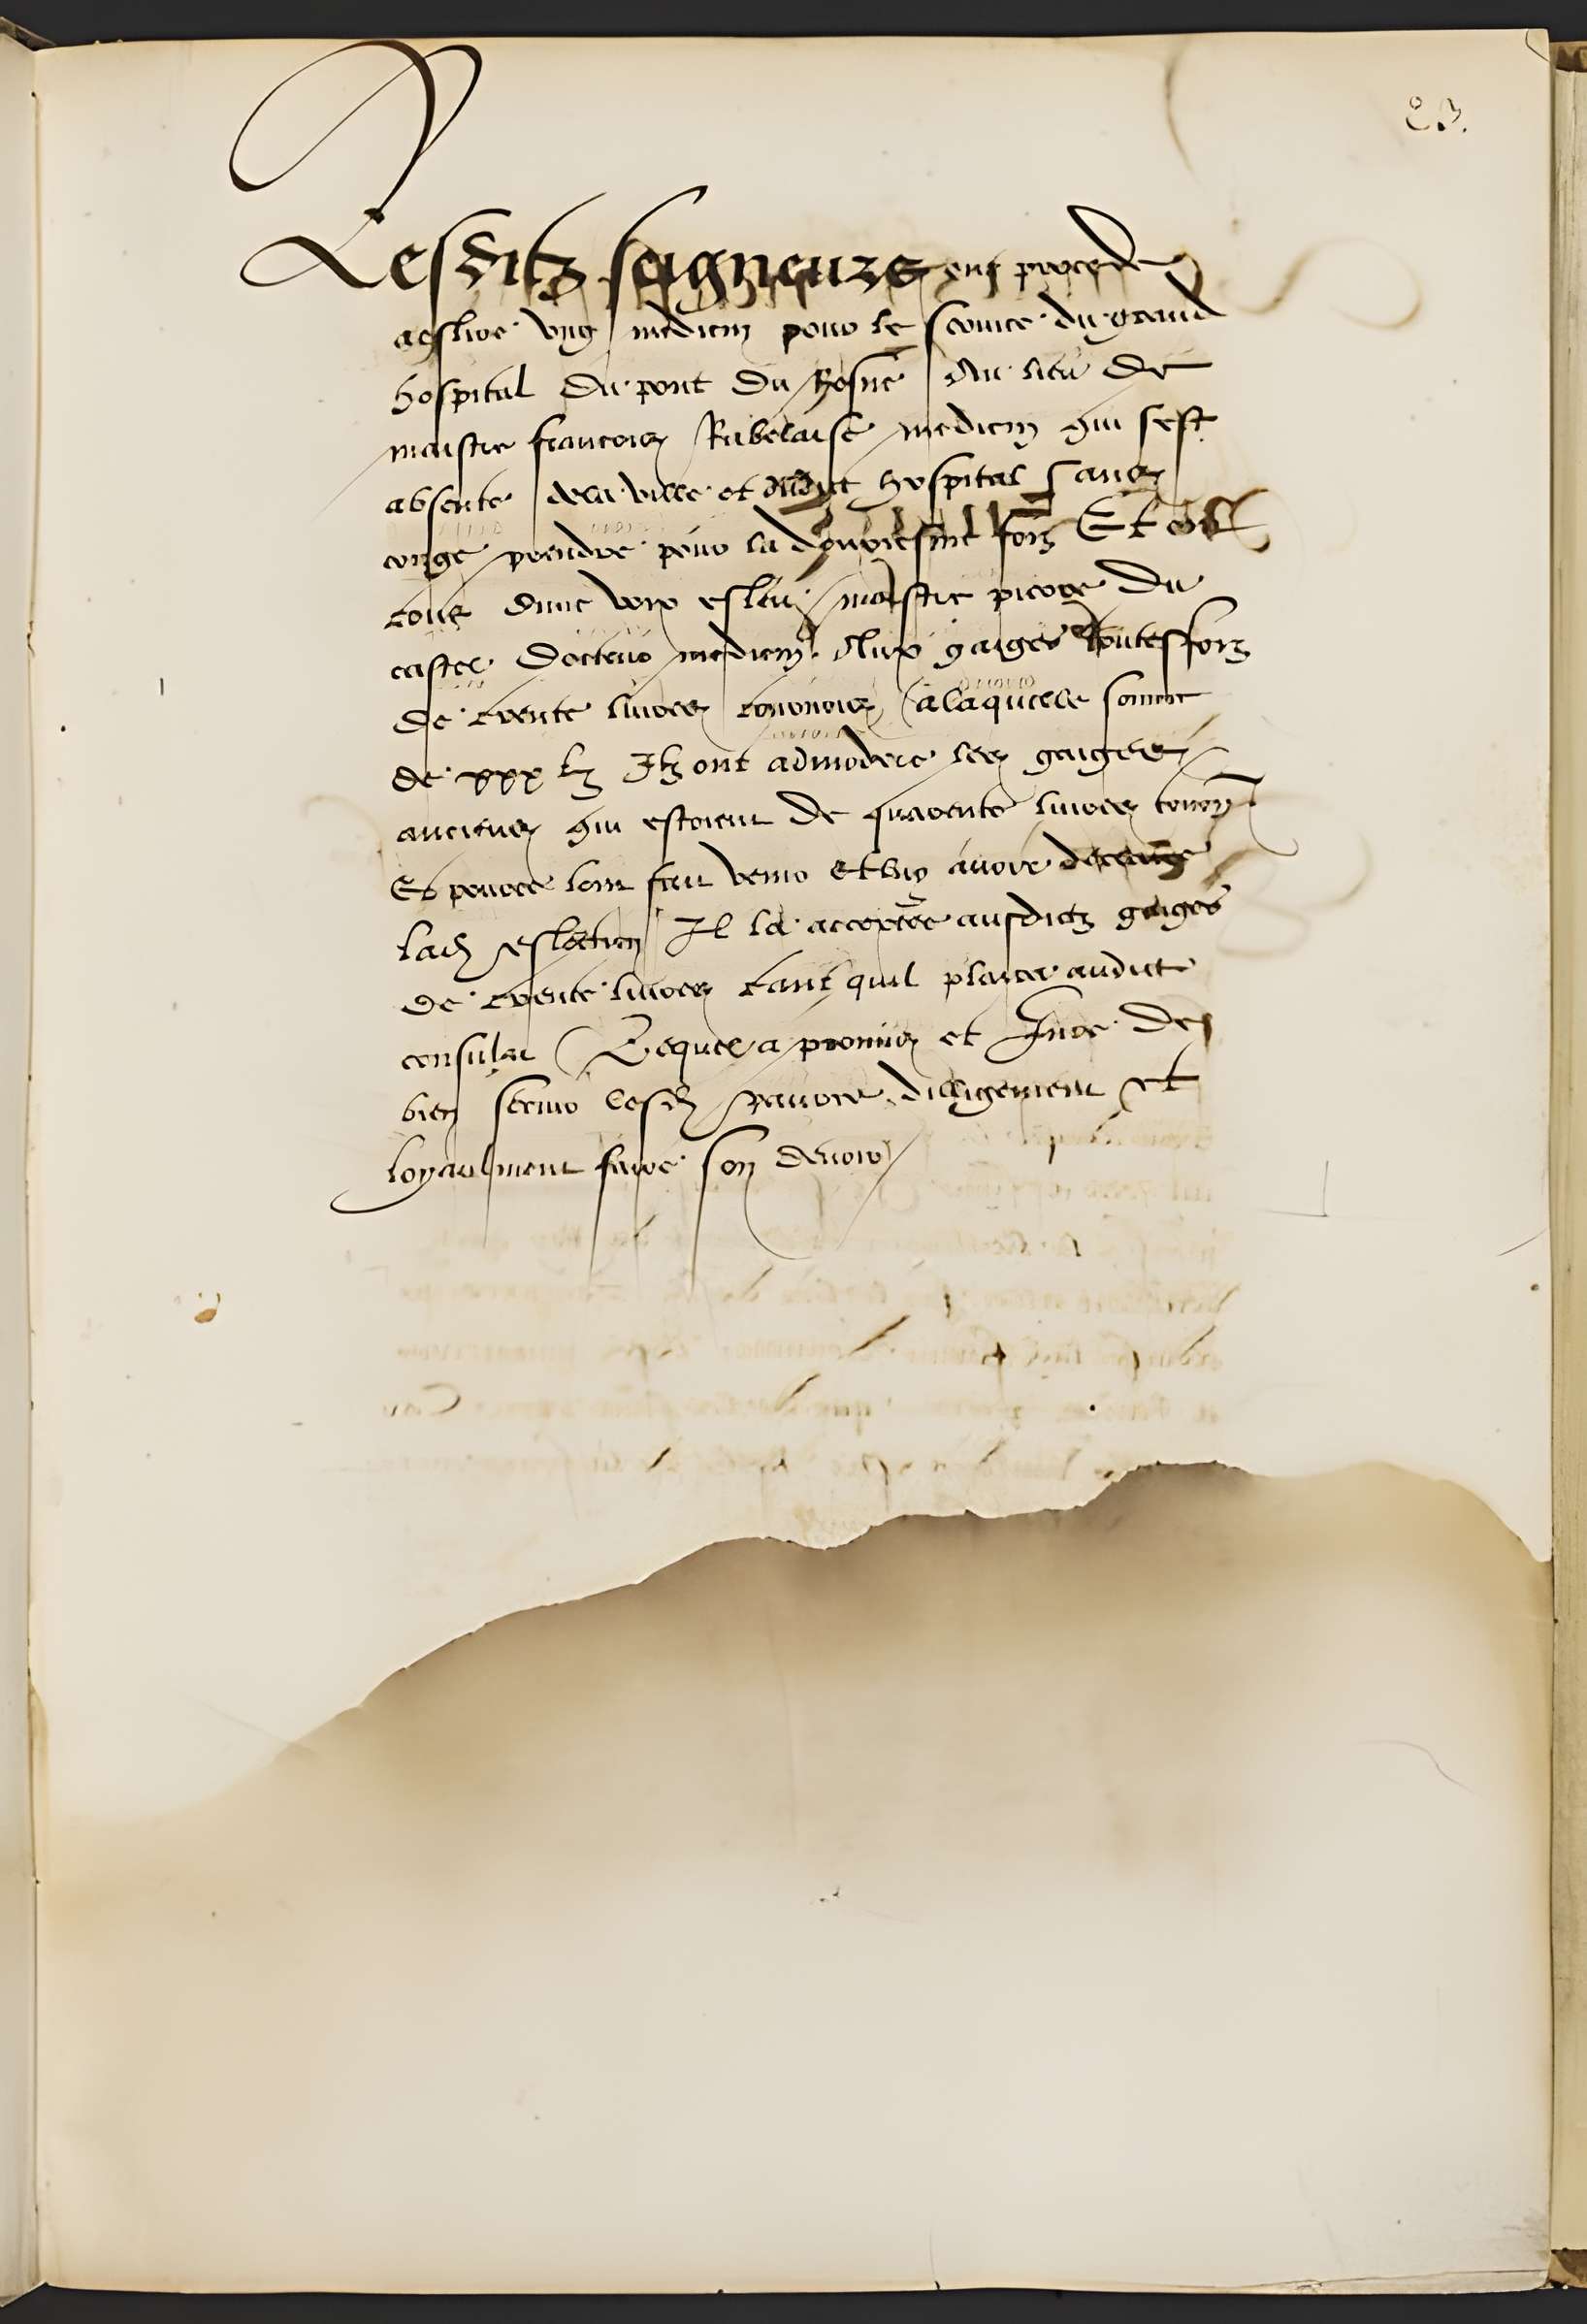 23.
Lesditz seigneurs ont procede
a eslire ung medicin pour le service du grand
hospital du pont du Rosne Au lieu de
maistre francoys Rabelaise medicin qui sest
absente dela ville et dudit hospital sans
conge prendre pour la deuxiesme foiz Et ont
tous dune voix esleu maistre pierre du
castel docteur medicin Aux gaiges toutesfoiz
de trente livres tournois a laquelle somme
de xxx lz Ilz ont admodere les gaiges
anciens qui estoient de quarente livres tourn
Et pource lont fait venir et luy avoir declaire
lad eslection Il la acceptee ausdictz gaiges
de trente livres tant quil plaira audict
consulat Lequel a promis et Jure de
bien servir lesd pauvres dilligement et
loyaulment faire son devoir